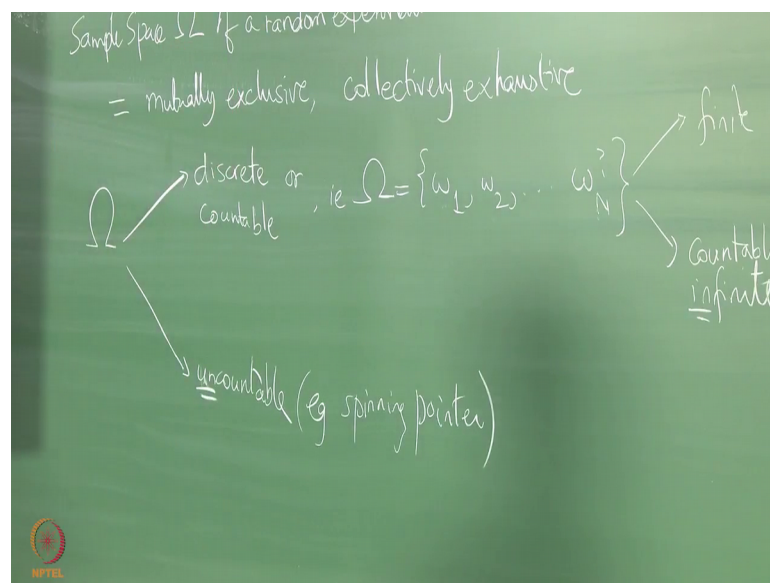 Sample Space Ω of a random
= mutually exclusive, collectively exhaustive
Ω
discrete or countable, ie Ω = {ω₁, ω₂, .... ω_N^?}
finite
Countabl
infinit
uncountable (eg spinning pointer)
NPTEL